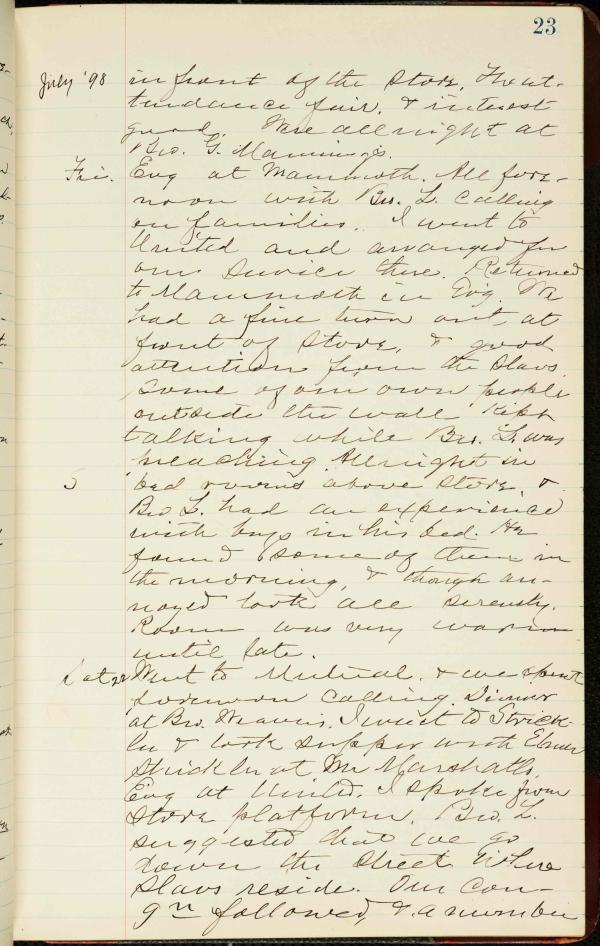 23
July '98 in front of the Store. The at-
tendance fair, & interest
good. Were all night at
Bro. G. Manning's.
Fri. Evg at Mammoth. All fore-
noon with Bro. L. calling
on families. I went to
United and arranged for
our service there. Returned
to Mammoth in Evg. We
had a fine turn out, at
front of Store, & good
attention from the Slavs.
Some of our own people
outside the wall kept
talking while Bro. L. was
preaching. All night in
bed rooms above Store, &
Bro L. had an experience
with bugs in his bed. He
found some of them in
the morning, & though an-
noyed took all serenely.
Room was very warm
until late.
Went to Mutual, & we spent
forenoon calling. Dinner
at Bro. Weavers. I went to Strick-
ler & took supper with Elmer
Strickler at Mr Marshalls.
Evg at United. I spoke from
Store platform. Bro. L.
suggested that we go
down the street where
Slavs reside. Our con-
gn followed, & a number